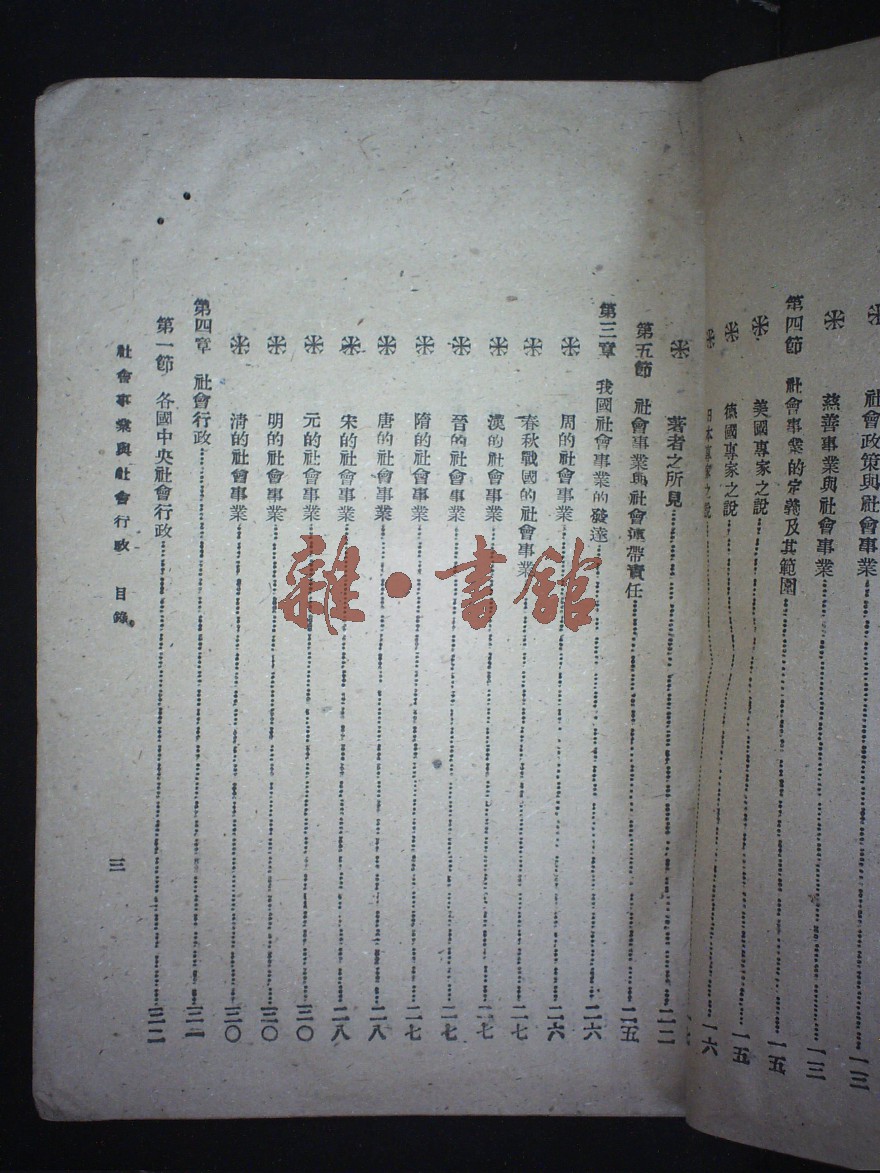 ※ 社會政策與社會事業……一三
※ 慈善事業與社會事業……一三
第四節 社會事業的定義及其範圍……一五
※ 美國專家之說……一五
※ 德國專家之說……一六
※ 日本專家之說……
※ 著者之所見……二二
第五節 社會事業與社會連帶責任……二五
第三章 我國社會事業的發達……二六
※ 周的社會事業……二六
※ 春秋戰國的社會事業……二七
※ 漢的社會事業……二七
※ 晉的社會事業……二七
※ 隋的社會事業……二七
※ 唐的社會事業……二八
※ 宋的社會事業……二八
※ 元的社會事業……三〇
※ 明的社會事業……三〇
※ 清的社會事業……三〇
第四章 社會行政……三二
第一節 各國中央社會行政……三二
社會事業與社會行政 目錄 三
雜·書館